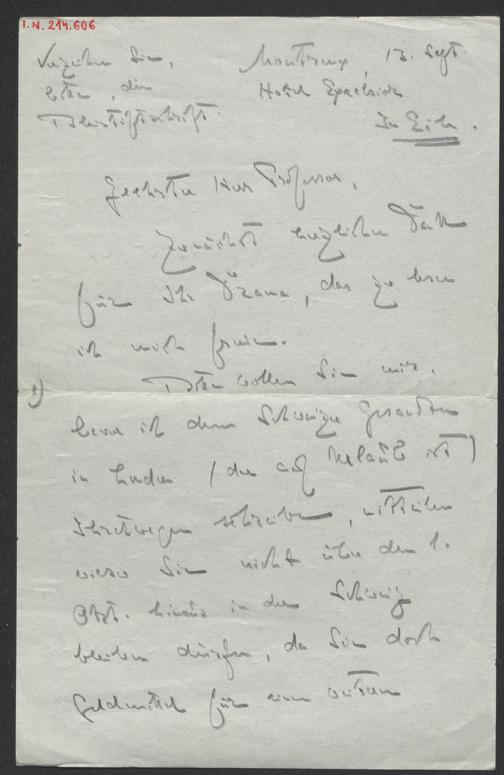 I.N. 214.606
Verzeihen Sie,
bitte, die
Bleistiftschrift.
Montreux 13. Sept.
Hotel Excelsior
In Eile.
Geehrter Herr Professor,
Zunächst herzlichen Dank
für Ihr Drama, das zu lesen
ich mich freue.
Bitte wollen Sie mir,
1)
bevor ich dem Schweizer Gesandten
in London (der auf Urlaub ist)
Ihretwegen schreibe, mitteilen
wieso Sie nicht über den 1.
Okt. hinaus in der Schweiz
bleiben dürfen, da Sie doch
Geldmittel für einen